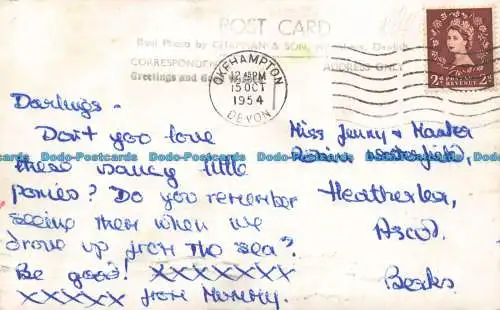 POST CARD
Real Photo by CHAPMAN & SON, Dawlish
CORRESPONDENCE ADDRESS ONLY
Greetings and Good Wishes
OKEHAMPTON
12.45PM
15 OCT
1954
DEVON
POSTAGE REVENUE
2D 2D
Darlings -
Don't you love
these saucy little
ponies? Do you remember
seeing them when we
drove up from the sea?
Be good! XXXXXXX
XXXXX from Mummy.
Miss Jenny & Master
Heatherlea,
Ascot.
Berks
Dodo-Postcards Dodo-Postcards Dodo-Postcards Dodo-Postcards Dodo-Postcards